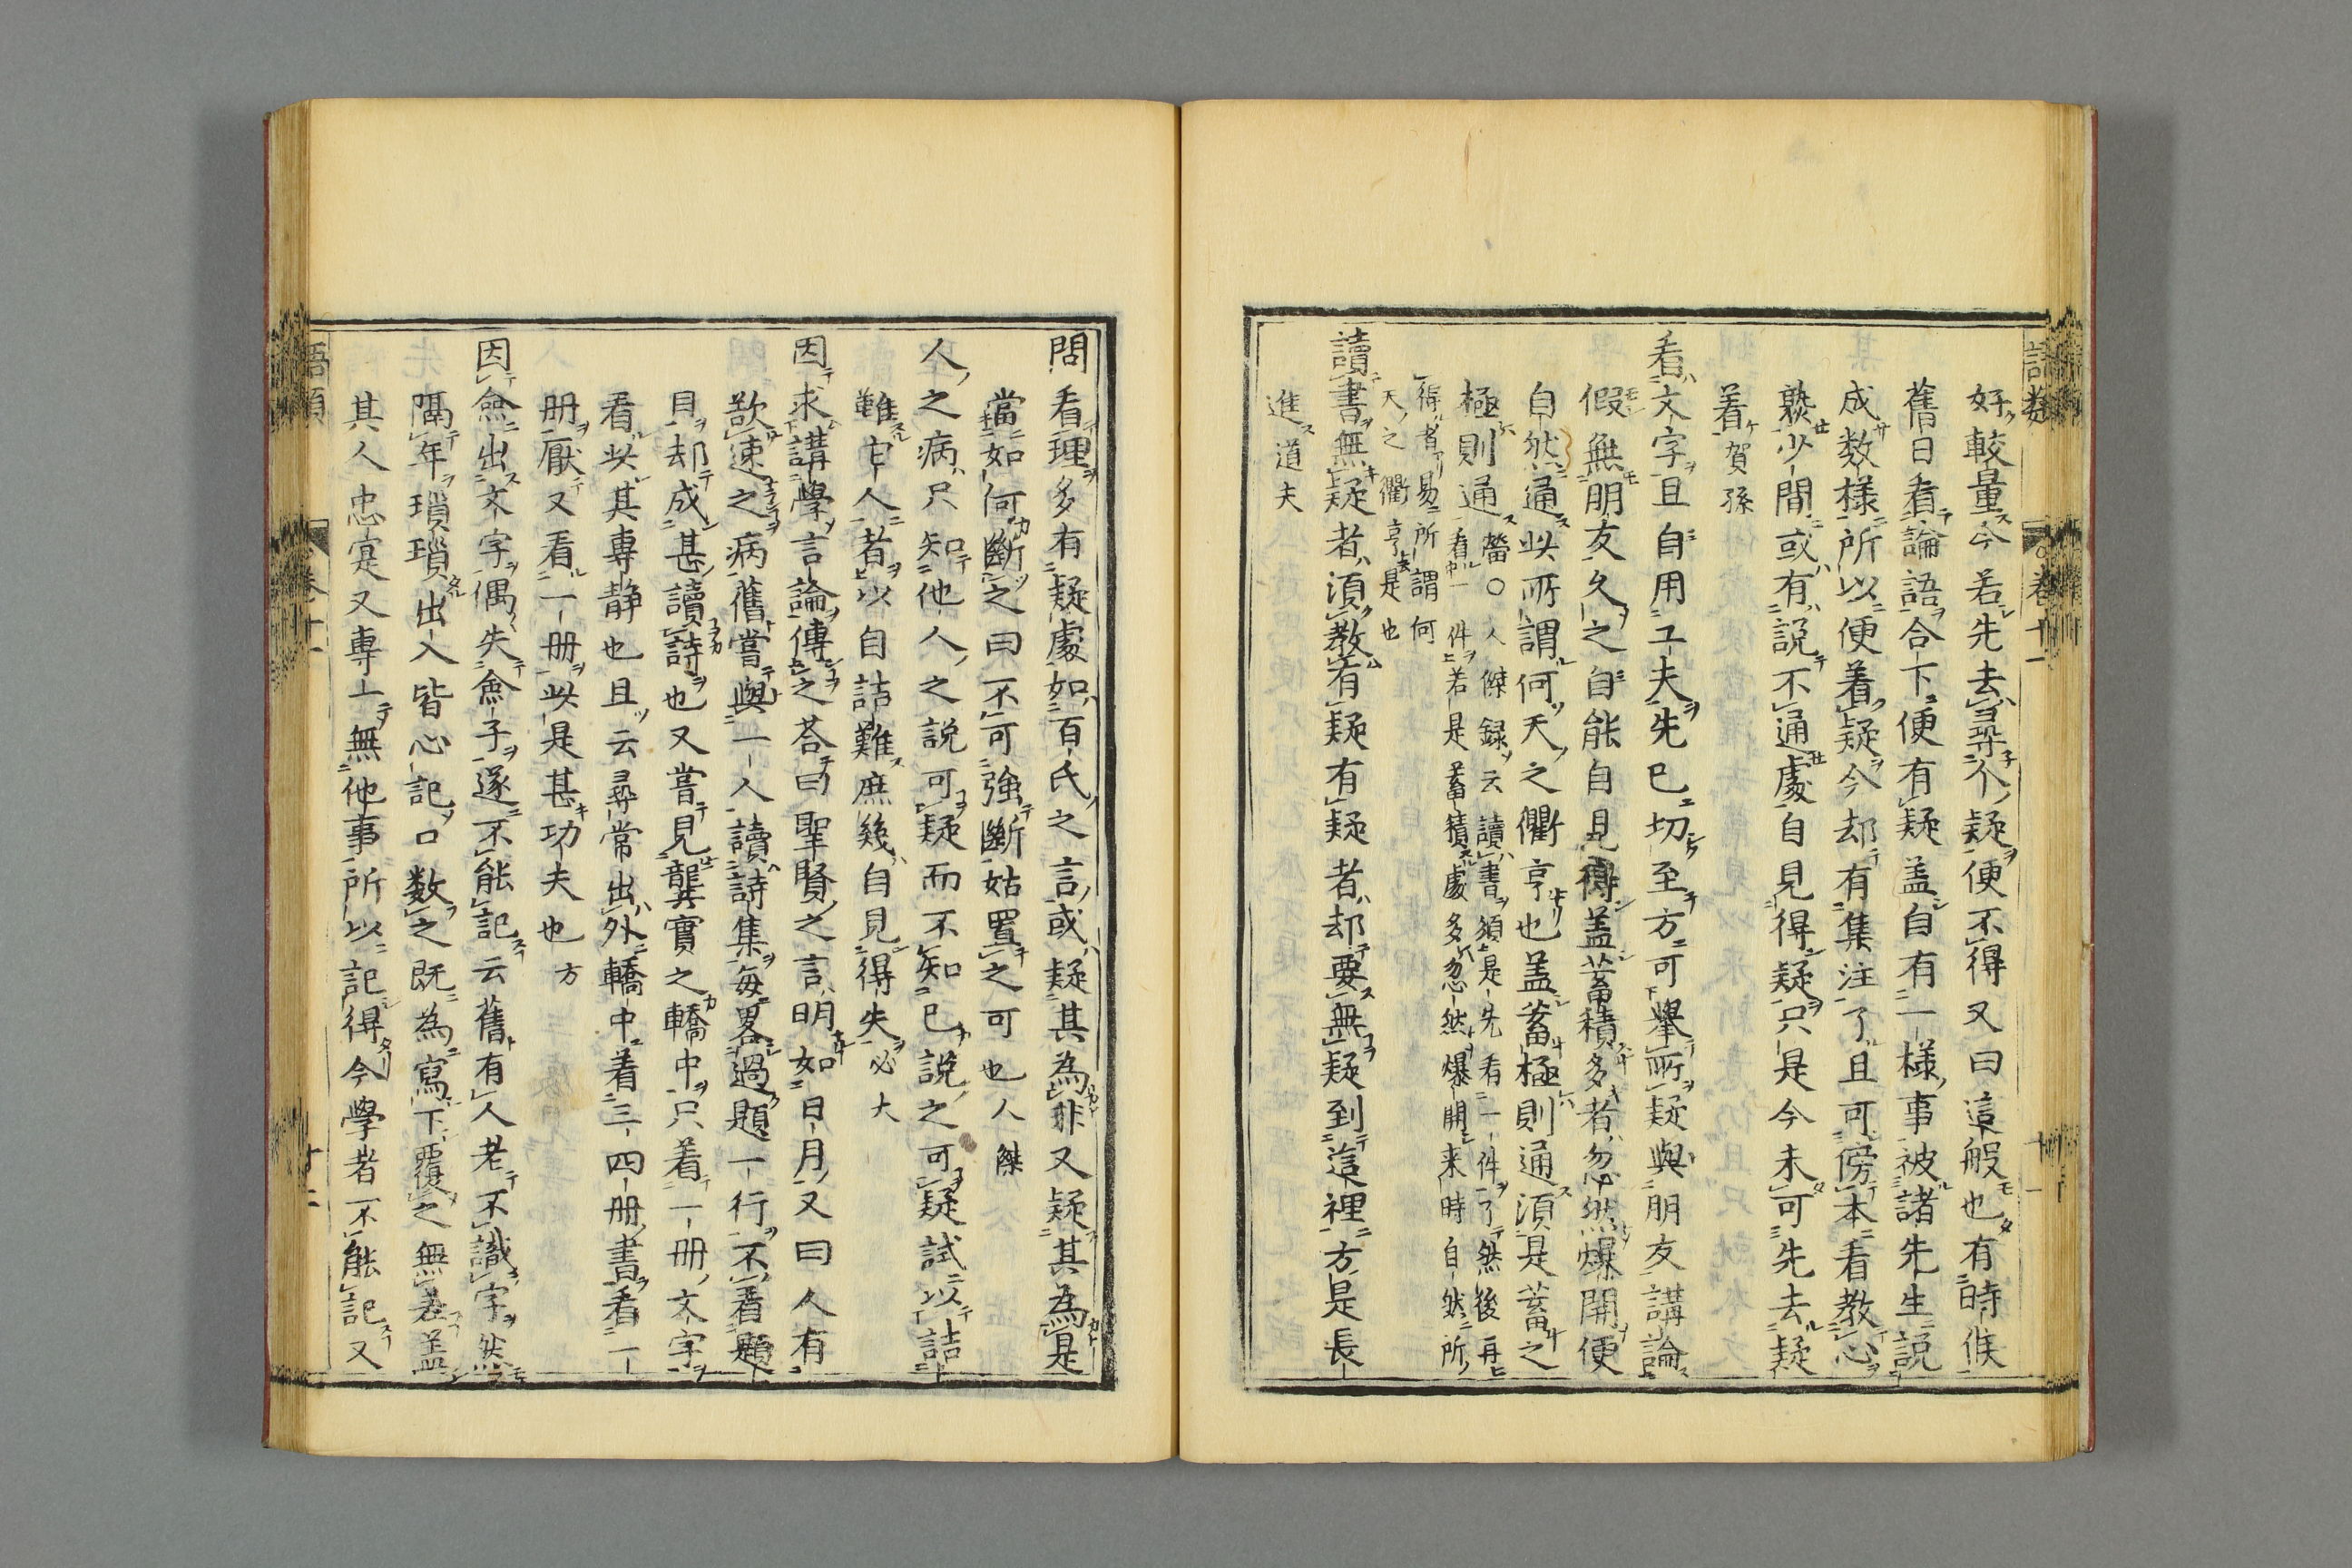 語類 卷十一
好較量今若先去尋个疑便不得又曰這般也有時候
舊日看論語合下便有疑盖自有一樣事被諸先生説
成数樣所以便着疑今却有集注了且可傍本看教心
熟少間或有説不通處自見得疑只是今未可先去疑
着賀孫
看文字且自用工夫先已切至方可舉所疑與朋友講論
假無朋友久之自能自見得盖蓄積多者忽然爆開便
自然通此所謂何天之衢亨也盖蓄極則通湏是蓄之
極則通㽦〇人傑録云讀書須是先看一件了然後再
看一件若是蓄積處多忽然爆開来時自然所
得者易所謂何
天之衢亨是也
讀書無疑者湏教有疑有疑者却要無疑到這裡方是長
進道夫
問看理多有疑處如百氏之言或疑其為非又疑其為是
當如何斷之曰不可強斷姑置之可也人傑
人之病只知他人之説可疑而不知已説之可疑試以詰
難它人者以自詰難庶幾自見得失必大
因求講學言論傳之荅曰聖賢之言明如日月又曰人有
欲速之病舊嘗與一人讀詩集每畧過題一行不看題
目却成甚讀詩也又嘗見龔實之轎中只着一册文字
看此其專静也且云尋常出外轎中着三四册書看一
册厭又看一册此是甚功夫也方
因僉出文字偶失僉子遂不能記云舊有人老不識字然
隔年瑣瑣出入皆心記口数之既為寫下覆之無差盖
其人忠寔又專一無他事所以記得今學者不能記又
語類 卷十一 十二